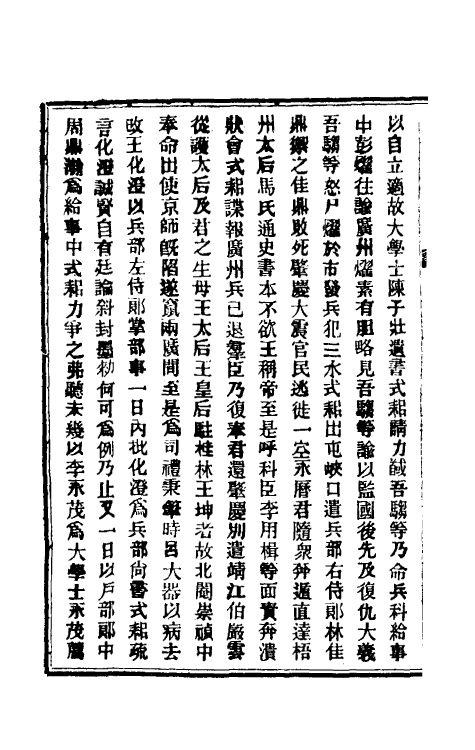 以自立適故大學士陳子壯遺書式耜請力誠吾騶等乃命兵科給事
中彭燿往諭廣州燿素有胆略見吾騶等諭以監國後先及復仇大義
吾騶等怒尸燿於市發兵犯三水式耜出屯峽口遣兵部右侍郎林佳
鼎禦之佳鼎敗死肇慶大震官民逃徙一空永曆君隨衆奔遁直達梧
州太后馬氏通史書本不欲王稱帝至是呼科臣李用楫等面責奔潰
狀會式耜諜報廣州兵已退羣臣乃復奉君還肇慶別遣靖江伯嚴雲
從護太后及君之生母王太后王皇后駐桂林王坤者故北閹崇禎中
奉命出使京師旣陷遂竄兩廣間至是爲司禮秉筆時呂大器以病去
改王化澄以兵部左侍郎掌部事一日內批化澄爲兵部尙書式耜疏
言化澄誠賢自有廷論斜封墨勅何可爲例乃止又一日以戶部郎中
周鼎瀚爲給事中式耜力爭之弗聽未幾以李永茂爲大學士永茂薦